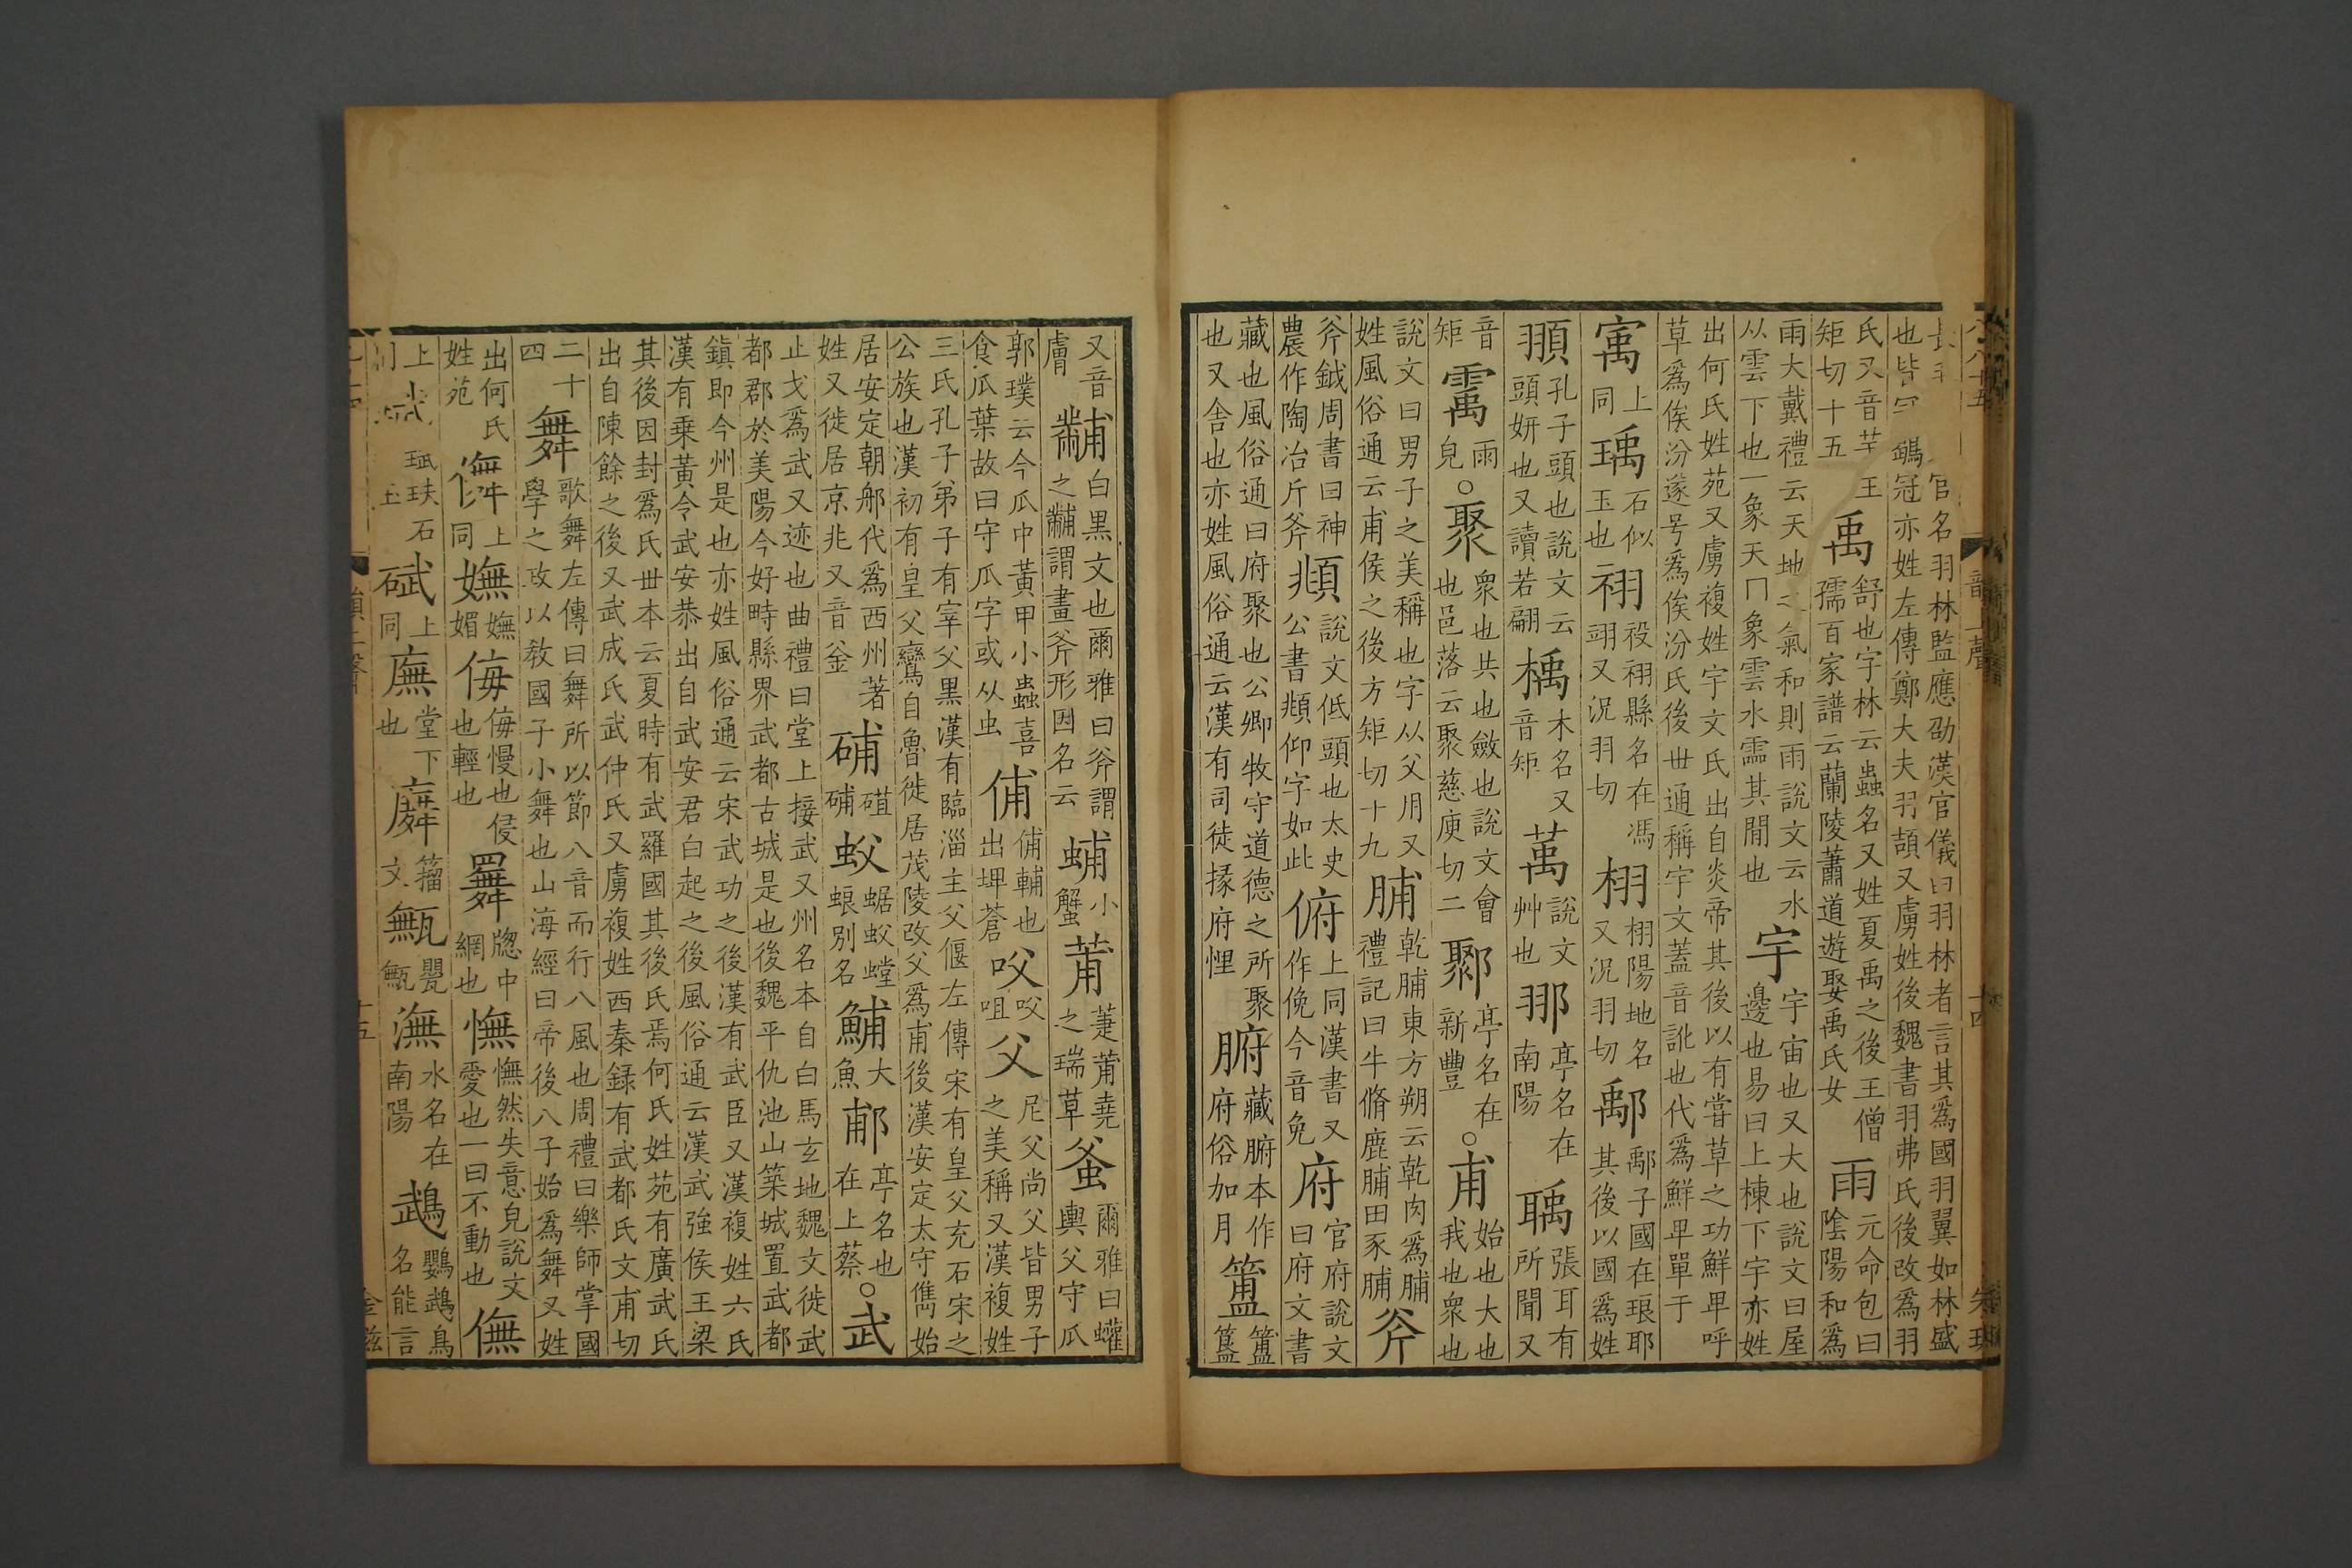 官名羽林監應劭漢官儀曰羽林者言其爲國羽翼如林盛也皆冠鶡冠亦姓左傳鄭大夫羽頡又虜姓後魏書羽弗氏後改爲羽
氏又音芋王矩切十五禹舒也字林云蟲名又姓夏禹之後王僧孺百家譜云蘭陵蕭道遊娶禹氏女雨元命包曰陰陽和爲
雨大戴禮云天地之氣和則雨說文云水以雲下也一象天冂象雲水霝其閒也宇宇宙也又大也說文曰屋邊也易曰上棟下宇亦姓
出何氏姓苑又虜複姓宇文氏出自炎帝其後以有嘗草之功鮮卑呼草爲俟汾遂号爲俟汾氏後世通稱宇文蓋音訛也代爲鮮卑單于
㝢上同瑀石似玉也祤祋祤縣名在馮翊又況羽切栩栩陽地名又況羽切鄅鄅子國在琅耶其後以國爲姓
頨孔子頭也說文云頭妍也又讀若翩楀木名又音矩萭說文艸也䢿亭名在南陽聥張耳有所聞又
音矩䨞雨皃○聚衆也共也斂也說文會也邑落云聚慈庾切二鄹亭名在新豐○甫始也大也我也衆也
說文曰男子之美稱也字从父用又姓風俗通云甫侯之後方矩切十九脯乾脯東方朔云乾肉爲脯禮記曰牛脩鹿脯田豕脯斧
斧鉞周書曰神農作陶冶斤斧頫說文低頭也太史公書頫仰字如此俯上同漢書又作俛今音免府官府說文曰府文書
藏也風俗通曰府聚也公卿牧守道德之所聚也又舍也亦姓風俗通云漢有司徒掾府悝腑藏腑本作府俗加月簠簠簋
又音膚黼白黑文也爾雅曰斧謂之黼謂畫斧形因名云蜅小蟹莆萐莆堯之瑞草蚥爾雅曰蠸輿父守瓜
郭璞云今瓜中黃甲小蟲喜食瓜葉故曰守瓜字或从虫俌俌輔也出埤蒼㕮㕮咀父尼父尚父皆男子之美稱又漢複姓
三氏孔子弟子有宰父黑漢有臨淄主父偃左傳宋有皇父充石宋之公族也漢初有皇父鸞自魯徙居茂陵改父爲甫後漢安定太守儁始
居安定朝郍代爲西州著姓又徙居京兆又音釜䃽礓䃽蚥蜛蚥螳蜋別名鯆大魚郙亭名也在上蔡○武
止戈爲武又迹也曲禮曰堂上接武又州名本自白馬玄地魏文徙武都郡於美陽今好畤縣界武都古城是也後魏平仇池山築城置武都
鎮即今州是也亦姓風俗通云宋武功之後漢有武臣又漢複姓六氏漢有乗黃令武安恭出自武安君白起之後風俗通云漢武強侯王梁
其後因封爲氏世本云夏時有武羅國其後氏焉何氏姓苑有廣武氏出自陳餘之後又武成氏武仲氏又虜複姓西秦録有武都氏文甫切
二十四舞歌舞左傳曰舞所以節八音而行八風也周禮曰樂師掌國學之政以敎國子小舞也山海經曰帝後八子始爲舞又姓
出何氏姓苑儛上同嫵嫵媚侮侮慢也侵也輕也䍢牎中網也憮憮然失意皃說文愛也一曰不動也㒇
上同珷珷玞石碔上同廡堂下也㒇籀文甒甖甒潕水名在南陽鵡鸚鵡鳥名能言